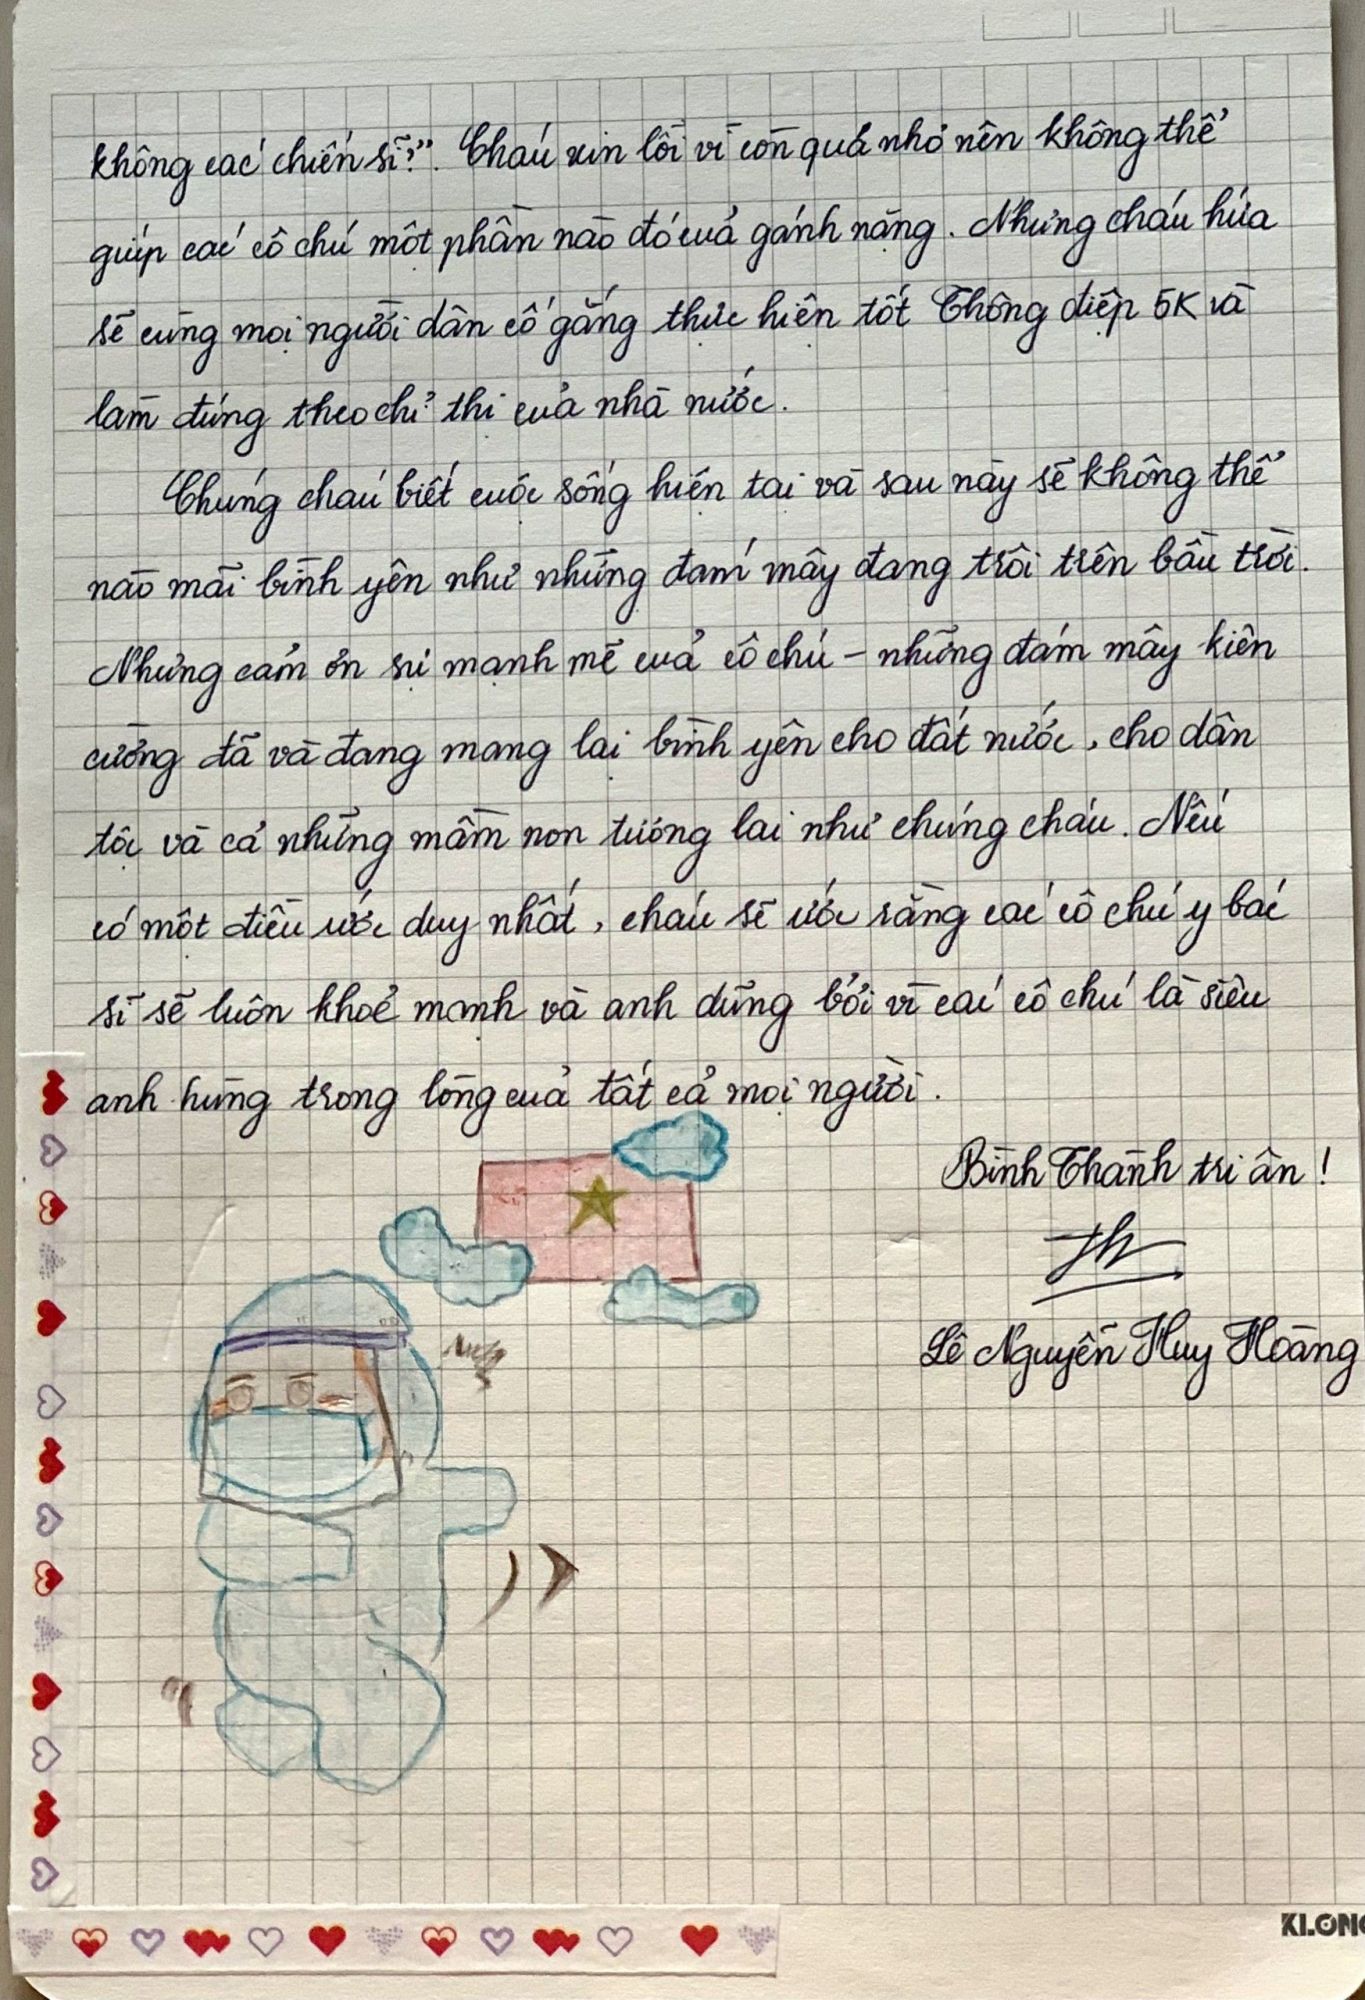 không các chiến sĩ?". Cháu xin lỗi vì còn quá nhỏ nên không thể
giúp các cô chú một phần nào đó của gánh nặng. Nhưng cháu hứa
sẽ cùng mọi người dân cố gắng thực hiện tốt Thông điệp 5K và
làm đúng theo chỉ thị của nhà nước.
Chúng cháu biết cuộc sống hiện tại và sau này sẽ không thể
nào mãi bình yên như những đám mây đang trôi trên bầu trời.
Nhưng cảm ơn sự mạnh mẽ của cô chú - những đám mây kiên
cường đã và đang mang lại bình yên cho đất nước, cho dân
tộc và cả những mầm non tương lai như chúng cháu. Nếu
có một điều ước duy nhất, cháu sẽ ước rằng các cô chú y bác
sĩ sẽ luôn khoẻ mạnh và anh dũng bởi vì các cô chú là siêu
anh hùng trong lòng của tất cả mọi người.
Bình Thạnh tri ân!
Lê Nguyễn Huy Hoàng